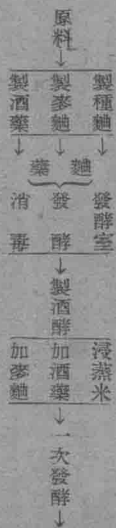 原料↓
製種麯↓
製麥麯↓
製酒藥↓
麯藥
發酵室
發酵
消毒
↓製酒酵
浸蒸米
加酒藥
加麥麯
↓一次發酵↓